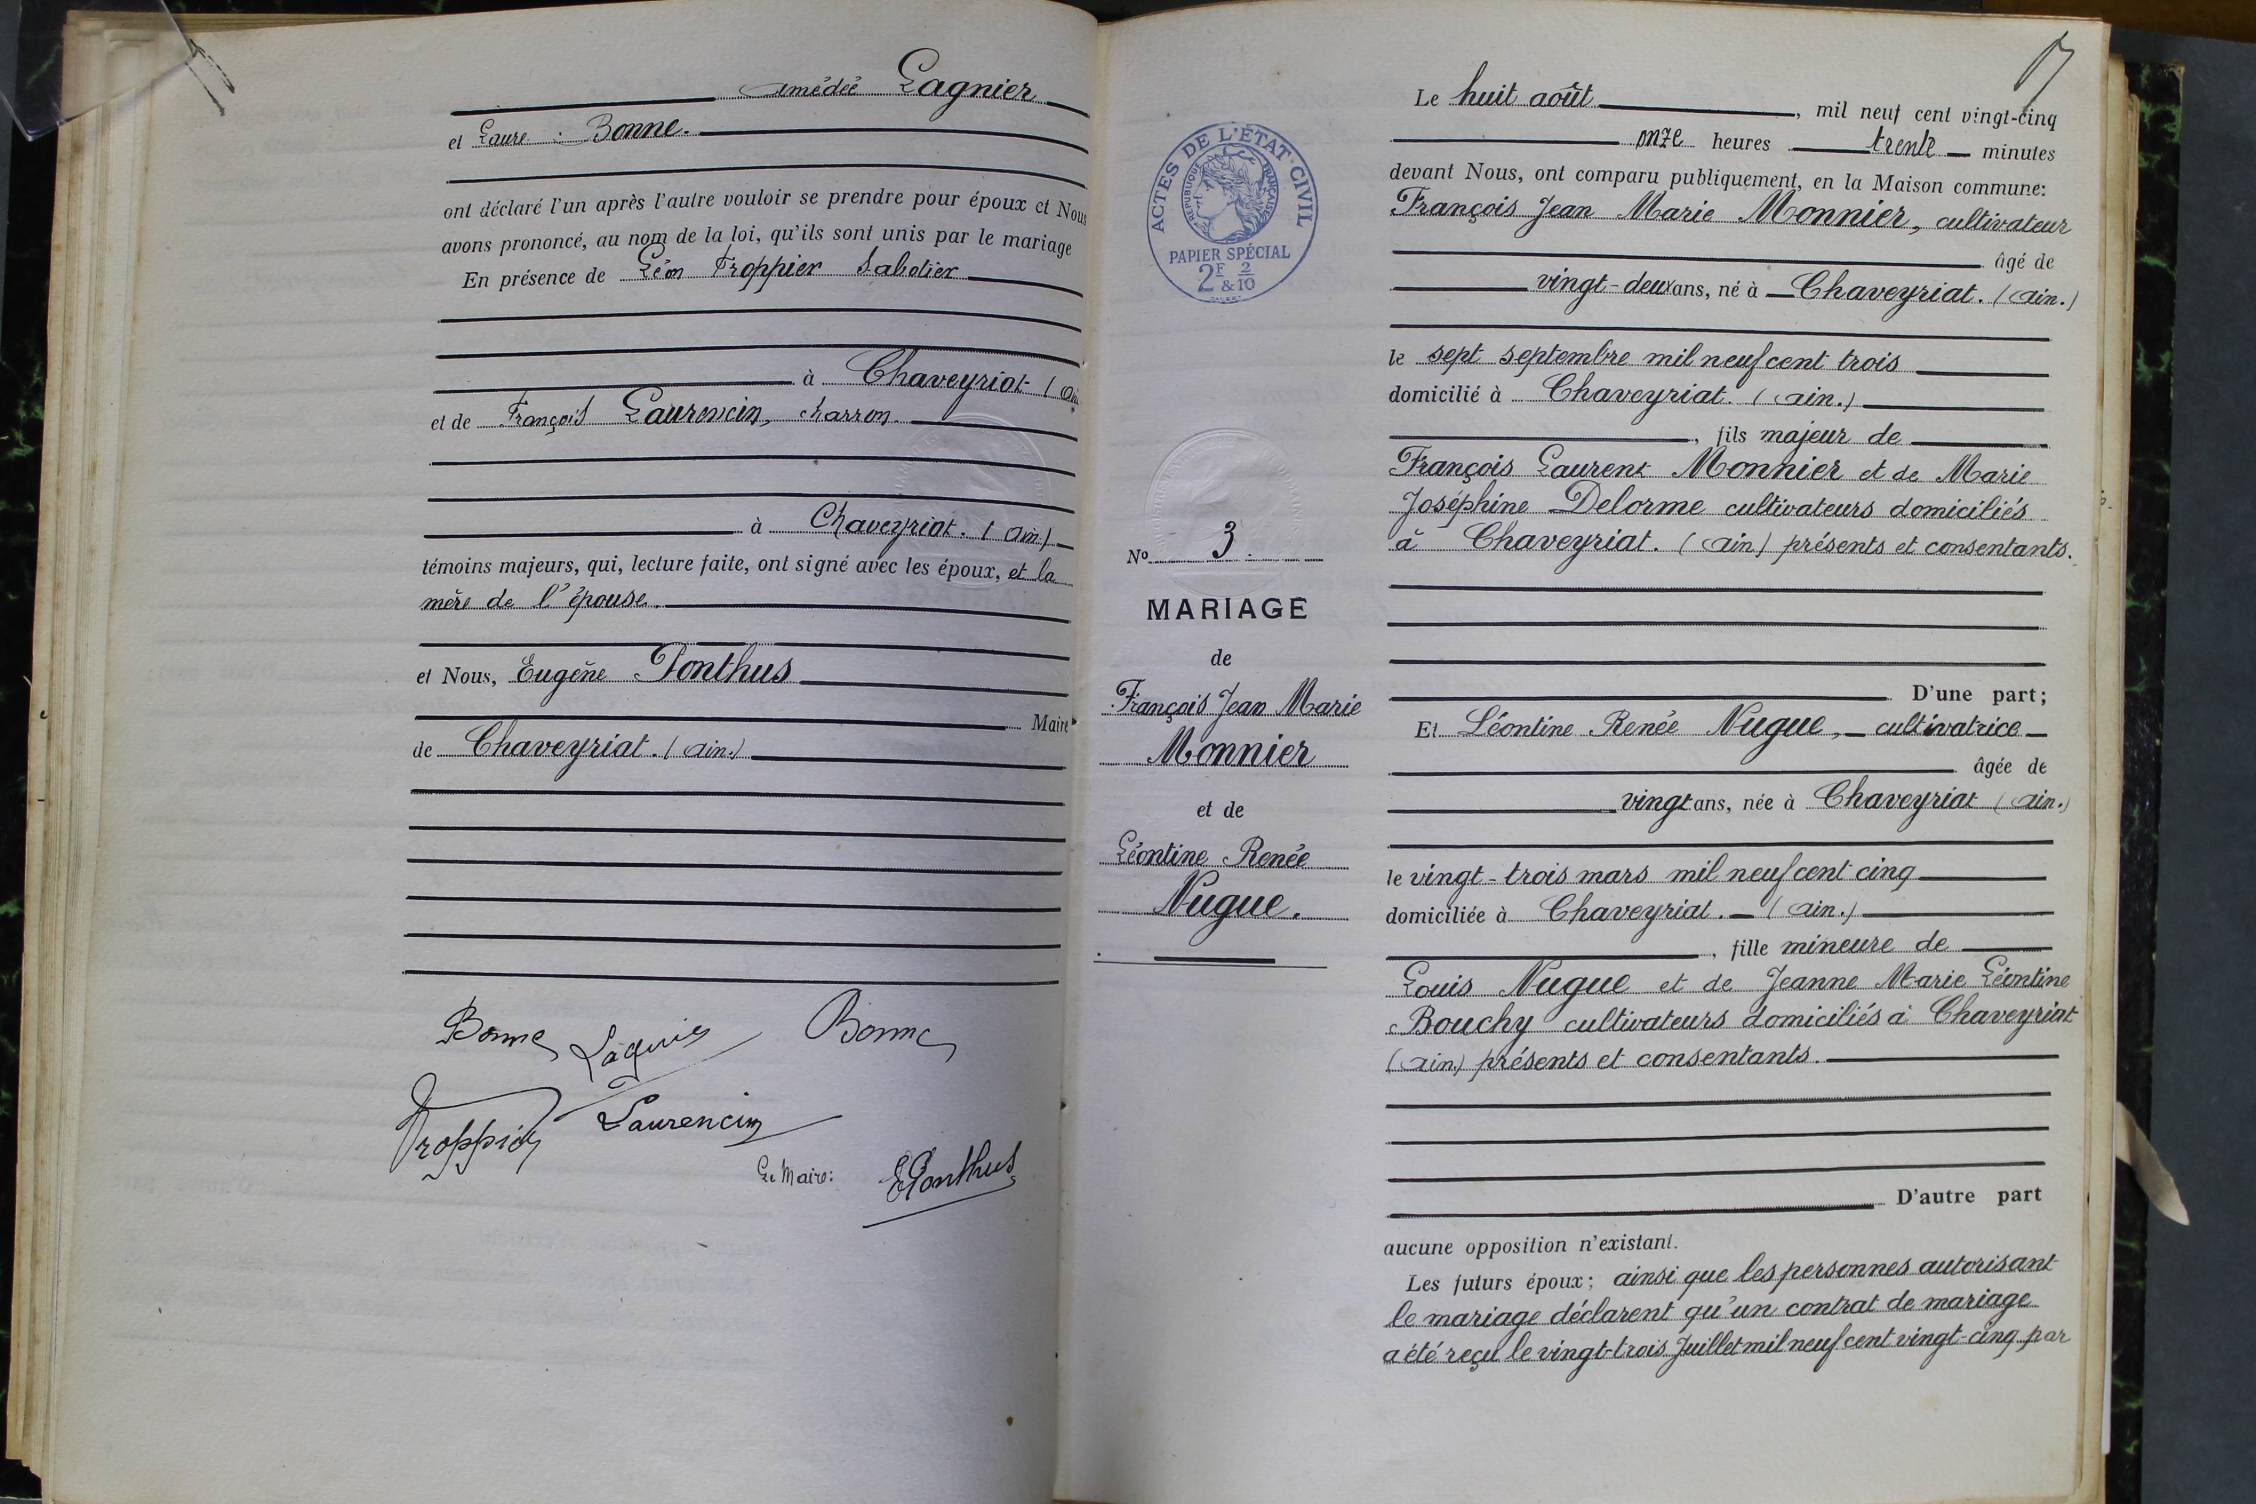 amédée Lagnier
et Laure Bonne.
ont déclaré l'un après l'autre vouloir se prendre pour époux et Nous
avons prononcé, au nom de la loi, qu'ils sont unis par le mariage
En présence de Léon Troppier Sabotier
à Chaveyriat (Ain
et de François Laurencin, charron
à Chaveyriat. (Ain)
témoins majeurs, qui, lecture faite, ont signé avec les époux, et la
mère de l'épouse.
et Nous, Eugène Ponthus
Maire
de Chaveyriat. (Ain.)
Bonne Lagnier Bonne
Troppier Laurencin
Le Maire: EPonthus
ACTES DE L'ÉTAT CIVIL
REPUBLIQUE FRANÇAISE
PAPIER SPÉCIAL
2F 2/10
&
No 3.
MARIAGE
de
François Jean Marie
Monnier
et de
Léontine Renée
Nugue.
Le huit août, mil neuf cent vingt-cinq
onze heures trente minutes
devant Nous, ont comparu publiquement, en la Maison commune:
François Jean Marie Monnier, cultivateur
âgé de
vingt-deux ans, né à Chaveyriat. (Ain.)
le sept septembre mil neuf cent trois
domicilié à Chaveyriat. (Ain.)
, fils majeur de
François Laurent Monnier et de Marie
Joséphine Delorme cultivateurs domiciliés
à Chaveyriat. (Ain) présents et consentants.
D'une part;
Et Léontine Renée Nugue, cultivatrice
âgée de
vingt ans, née à Chaveyriat (Ain.)
le vingt-trois mars mil neuf cent cinq
domiciliée à Chaveyriat. (Ain.)
, fille mineure de
Louis Nugue et de Jeanne Marie Léontine
Bouchy cultivateurs domiciliés à Chaveyriat
(Ain) présents et consentants.
D'autre part
aucune opposition n'existant.
Les futurs époux; ainsi que les personnes autorisant
le mariage déclarent qu'un contrat de mariage
a été reçu le vingt-trois Juillet mil neuf cent vingt-cinq par